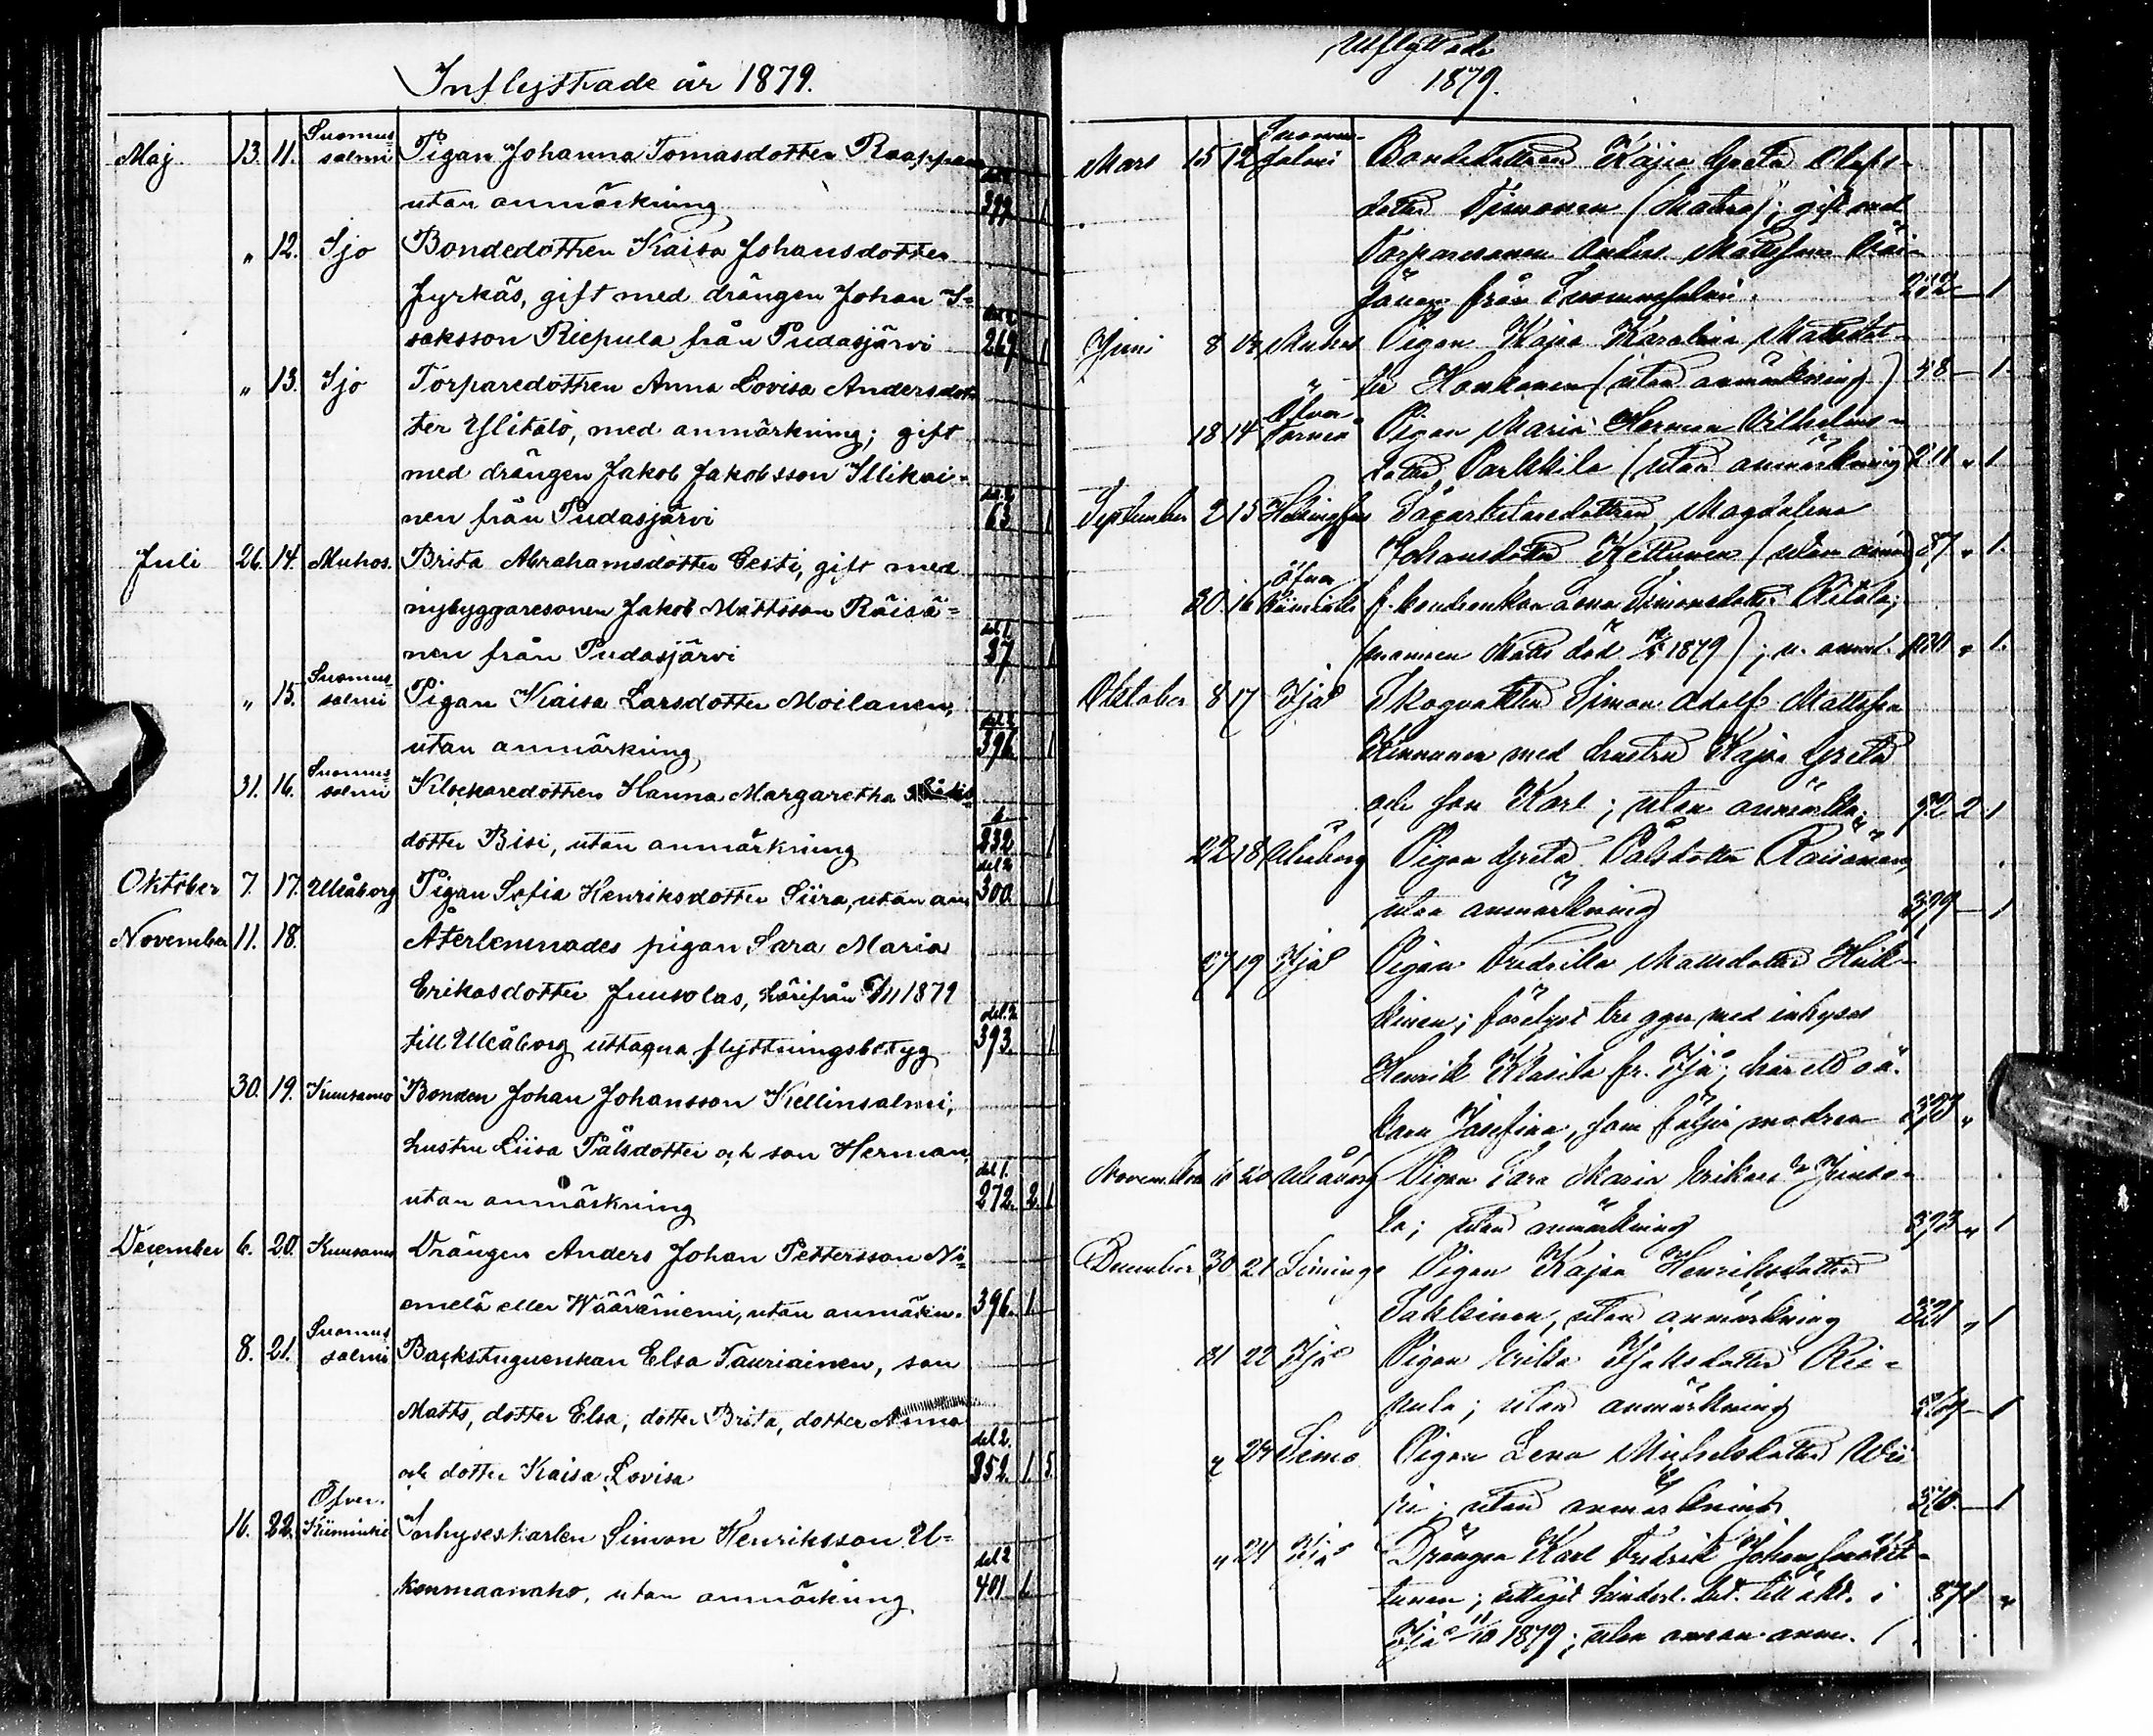 Inflyttade år 1879.
Maj. 13. 11. Suomus=
salmi Pigan Johanna Tomasdotter Raappana
utan anmärkning 399 1
" 12. Ijo Bondedottren Kaisa Johansdotter
Jyrkäs, gift med drängen Johan I=
saksson Riepula från Pudasjärvi 269 1
" 13. Ijo Torparedottren Anna Lovisa Andersdot
ter Ylitalo, med anmärkning; gift
med drängen Jakob Jakobsson Illikai=
nen från Pudasjärvi 63 1
Juli 26. 14. Muhos. Brita Abrahamsdotter Eesti, gift med
nybyggaresonen Jakob Mattsson Räisä=
nen från Pudasjärvi del 1. 37 1
" 15. Suomus=
salmi Pigan Kaisa Larsdotter Moilanen,
utan anmärkning 396 1
31. 16. Suomus=
salmi Klockaredottren Hanna Margaretha
dotter Bisi, utan anmärkning 232 1
Oktober 7. 17. Uleåborg Pigan Sofia Henriksdotter Siira, utan anm del 2 300. 1
November 11. 18. Återlemnades pigan Sara Maria
Eriksdotter Juusolas, härifrån 1879
till Uleåborg uttagna flyttningsbetyg del. 2 393. 1
30. 19. Kuusamo Bonden Johan Johansson Kellinsalmi,
hustru Liisa Pålsdotter och son Herman,
utan anmärkning del 1. 272. 2. 1
December 6. 20. Kuusamo Drängen Anders Johan Pettersson Ni=
emelä eller Wääräniemi, utan anmärkn. 396. 1.
8. 21. Suomus
salmi Backstuguenkan Elsa Tauriainen, son
Matts, dotter Elsa, dotter Brita, dotter Anna
och dotter Kaisa Lovisa del 2. 352. 1. 5.
16. 22. Öfver.
Kiiminki Inhyseskarlen Simon Henriksson U=
konmaanaho, utan anmärkning del 2 401 1
Utflyttade
1879.
Mars 15 12 Suomus-
salmi Bondedottren Kajsa Greta Olofs-
dotter Timonen (Matero); gift med
Torparesonen Anders Mattsson Väi-
sänen från Suomussalmi. 232 — 1
Juni 8 Muhos Pigan Kajsa Karolina Mattsdot-
ter Honkanen (utan anmärkning) 48 — 1.
18 14 Öfver
Torneå Pigan Maria Herman Vilhelms-
dotter Parkkila (utan anmärkning) 211 " 1
September 2 15 Helsingfors Dagarbetaredottren Magdalena
Johansdotter Kettunen (utan anm) 37 " 1.
30 16 Öfver
Kiiminki f. bondeenkan Anna Simonsdotter Pitälä;
(mannen Matts död 1879); u. anm. " 1.
Oktober 8 17 Ijo Skogvakten Simon Adolf Mattsson
Kinnunen med hustru Kajsa Greta
och son Karl; utan anmärkn. 92 2 1
22 18 Uleåborg Pigan Greta Pålsdotter Räisänen,
utan anmärkning 399 — 1
27 19 Ijo Pigan Fredrika Mattsdotter Heik-
kinen; förelyst tre ggr med inhyses
Henrik Klasila fr. Ijo; har
barn Josefina, som följer modren "
November 6 20 Uleåborg Pigan Sara Maria Eriksd:r Juuso-
la; utan anmärkning 393 " 1
December 30 21 Liminge Pigan Kajsa Henriksdotter
Sakkinen, utan anmärkning 321 " 1
31 22 Ijo Pigan Erika Isaksdotter Rie-
pula; utan anmärkning 269 — 1
" Simo Pigan Lena Michelsdotter
utan anmärkning 370 — 1
" 24 Ijo Drängen Karl Fredrik Johansson
tunen; uttagit hinderl. bet. till äkt. i 371 "
Ijo 11/10 1879; utan annan anm.